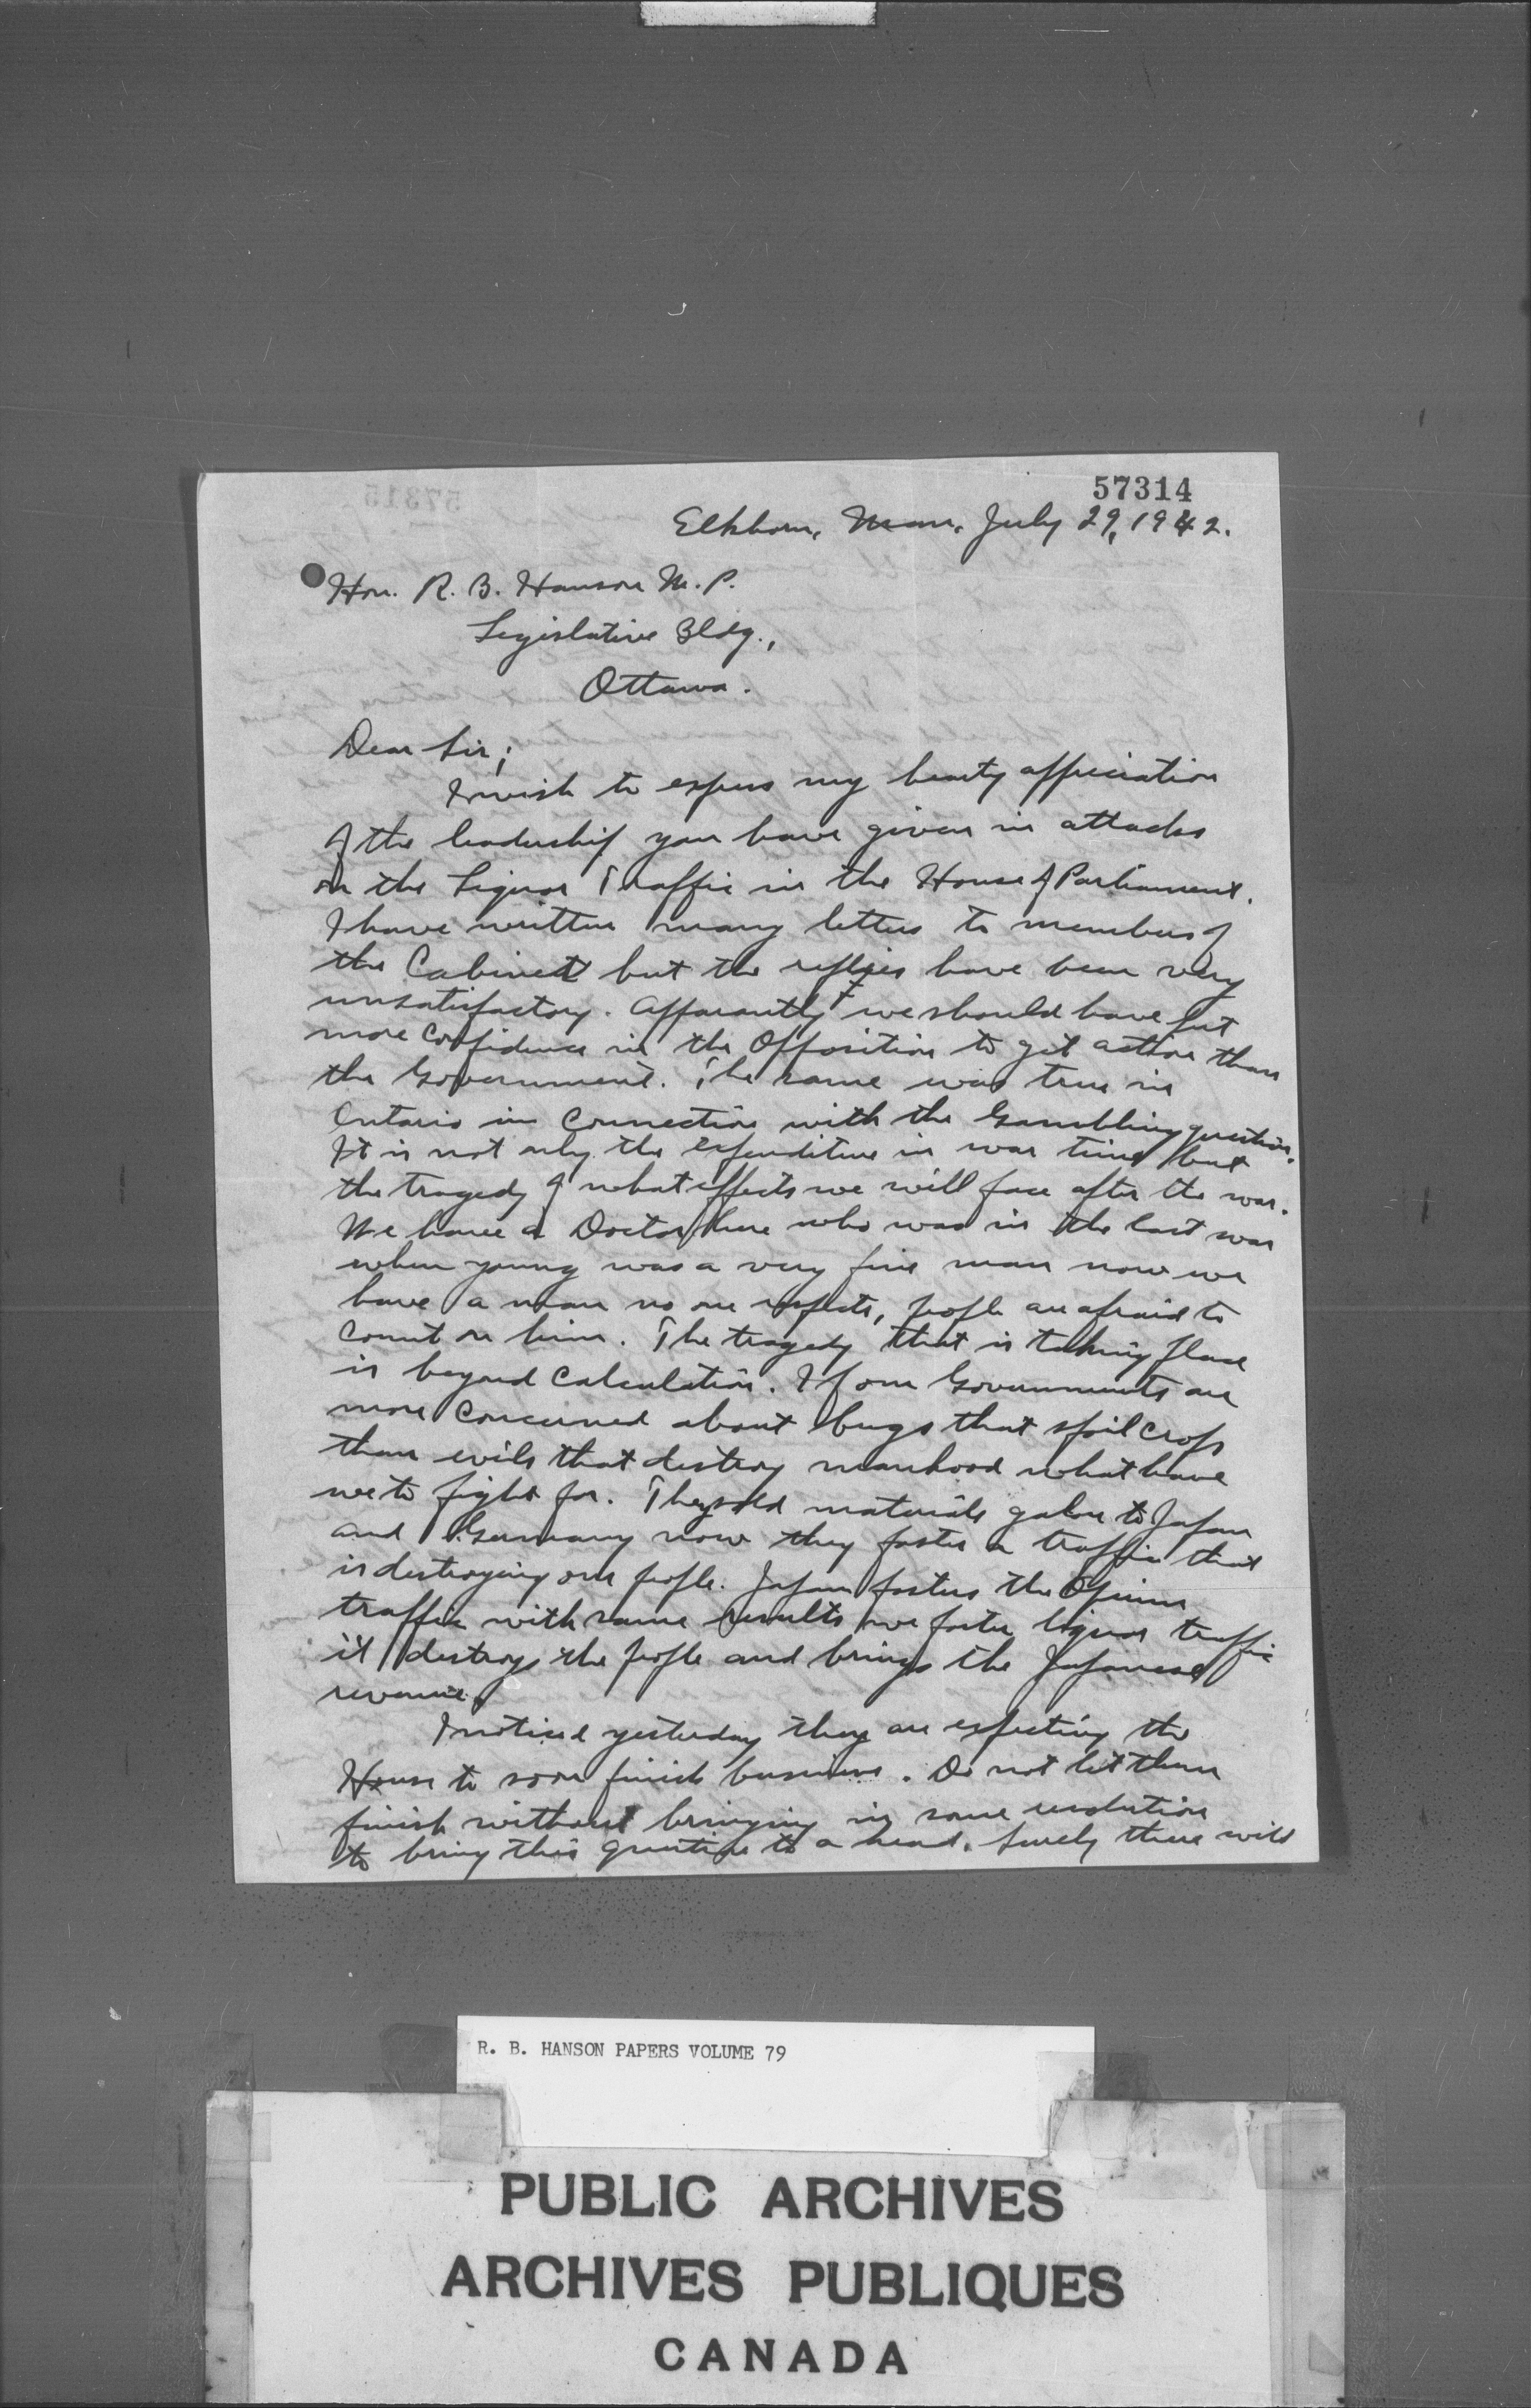 57314
Elkhorn, Man. July 29, 1942.
Hon. R. B. Hanson M. P.
Legislative Bldg.,
Ottawa.
Dear Sir;
I wish to express my hearty appreciation
of the leadership you have given in attacks
on the Liquor Traffic in the House of Parliament.
I have written many letters to members of
the Cabinet but the replies have been very
unsatisfactory. Apparantly we should have put
more confidence in the Opposition to get action than
the Government. The same was true in
Ontario in connection with the Gambling question.
It is not only the expenditure in war time but
the tragedy of what effects we will face after the war.
We have a Doctor here who was in the last war
when young was a very fine man now we
have a man no one respects, people are afraid to
count on him. The tragedy that is taking place
is beyond calculation. If our Governments are
more concerned about bugs that spoil crops
than evils that destroy manhood what have
we to fight for. They sold materials galore to Japan
and Germany now they foster a traffic that
is destroying our people. Japan fosters the Opium
traffic with same results we foster liquor traffic
it destroys the people and brings the Japanese
revenue.
I noticed yesterday they are expecting the
House to soon finish business. Do not let them
finish without bringing in some resolution
to bring this question to a head. Surely there will
R. B. HANSON PAPERS VOLUME 79
PUBLIC ARCHIVES
ARCHIVES PUBLIQUES
CANADA